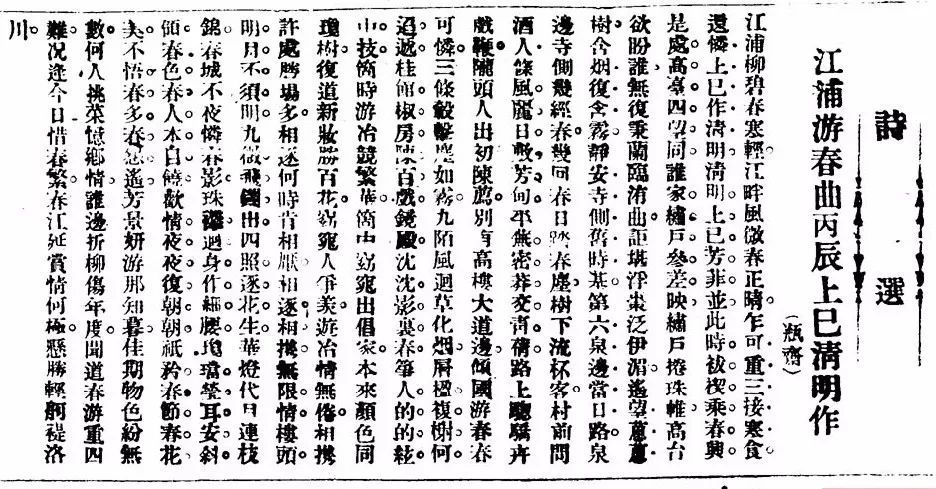 詩選
江浦游春曲丙辰上巳清明作
(瓶齋)
江浦柳碧春寒輕。江畔風微春正晴。乍可重三接寒食。
還憐上巳作清明。清明上巳芳菲並。此時祓禊乘春興。
是處高臺四望同。誰家繡戶參差映。繡戶捲珠帷。高台
欲盼誰。無復秉蘭臨洧曲。詎堪浮棗泛伊湄。遙望蔥蔥
樹。含烟復含霧。靜安寺側舊時基。第六泉邊當日路。泉
邊寺側幾經春。幾回春日踏春塵。樹下流杯客。村前問
酒人。條風麗日敷芳甸。平蕪密莽交青蒨。路上驄驕
戲鞭。隴頭人出初陳薦。別有高樓大道邊。傾國游春春
可憐。三條轂擊塵如霧。九陌風迴草化烟。層楹複榭何
迢遞。桂館椒房陳百戲。鏡殿沈沈影裏春。箏人的的絃
中技。箇時游冶競繁華。箇中窈窕出倡家。本來顏色同
瓊樹。復道新妝勝百花。窈窕人爭羨。遊冶情無倦。相攜
許處勝場多。相逐何時肯相厭。相逐相攜無限情。樓頭
明月不須明。九微飛出。四照逐花生。華燈代月連枝
錦。春城不夜憐春影。珠迴身作細腰。耳安斜
領。春色春人本自饒。歡情夜夜復朝朝。祇矜春節春花
美。不悟春多春愁遙。芳景妍游那知暮。佳期物色紛無
數。何人挑菜憶鄉情。誰邊折柳傷年度。聞道春游重四
難。況逢今日惜春繁。春江延賞情何極。懸勝輕舸洛
川。